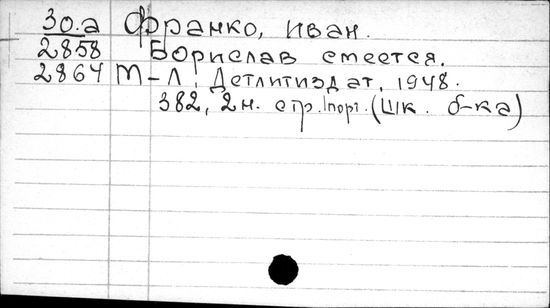 30.а Франко, Иван.
2858 Борислав смеется.
2864 М-Л, Детлитиздат, 1948.
382, 2 н. стр. 1 порт. (Шк. б-ка)